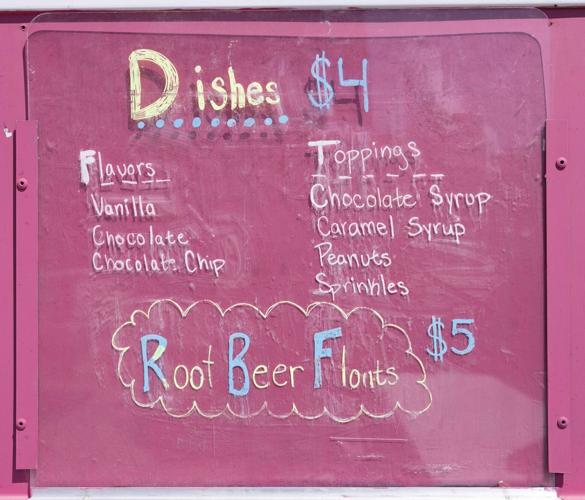 Dishes $4
Flavors
Vanilla
Chocolate
Chocolate Chip
Toppings
Chocolate Syrup
Caramel Syrup
Peanuts
Sprinkles
Root Beer Floats $5